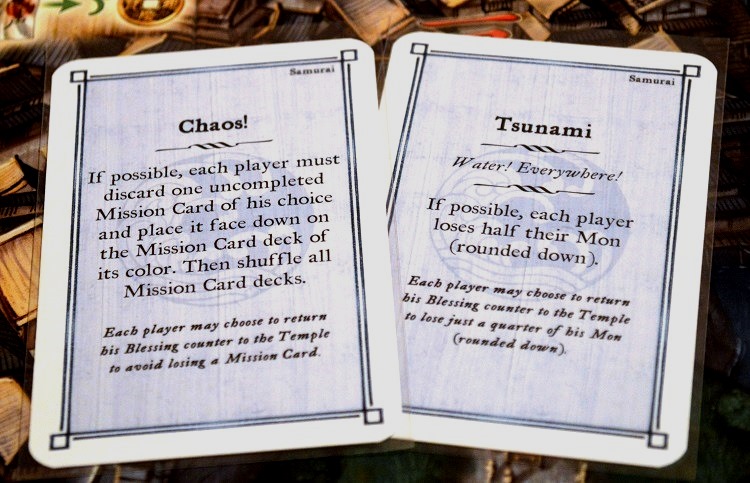 Samurai
Chaos!
If possible, each player must
discard one uncompleted
Mission Card of his choice
and place it face down on
the Mission Card deck of
its color. Then shuffle all
Mission Card decks.
Each player may choose to return
his Blessing counter to the Temple
to avoid losing a Mission Card.
Samurai
Tsunami
Water! Everywhere!
If possible, each player
loses half their Mon
(rounded down).
Each player may choose to return
his Blessing counter to the Temple
to lose just a quarter of his Mon
(rounded down).